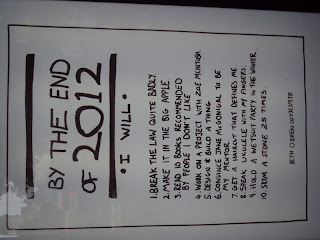 BY THE END
OF 2012
• I WILL •
1. BREAK THE LAW QUITE BADLY
2. MAKE IT IN THE BIG APPLE
3. READ 10 BOOKS RECOMMENDED
BY PEOPLE I DON'T LIKE
4. WORK ON A PROJECT WITH ZOE MCINTOSH
5. DESIGN & BUILD A THING
6. CONVINCE JANE MCGONIGAL TO BE
MY MENTOR
7. GET A HAIRCUT THAT DEFINES ME
8. SPEAK UKULELE WITH MY FINGERS
9. HOLD A WETSUIT PARTY IN THE WINTER
10. SKIM A STONE 25 TIMES